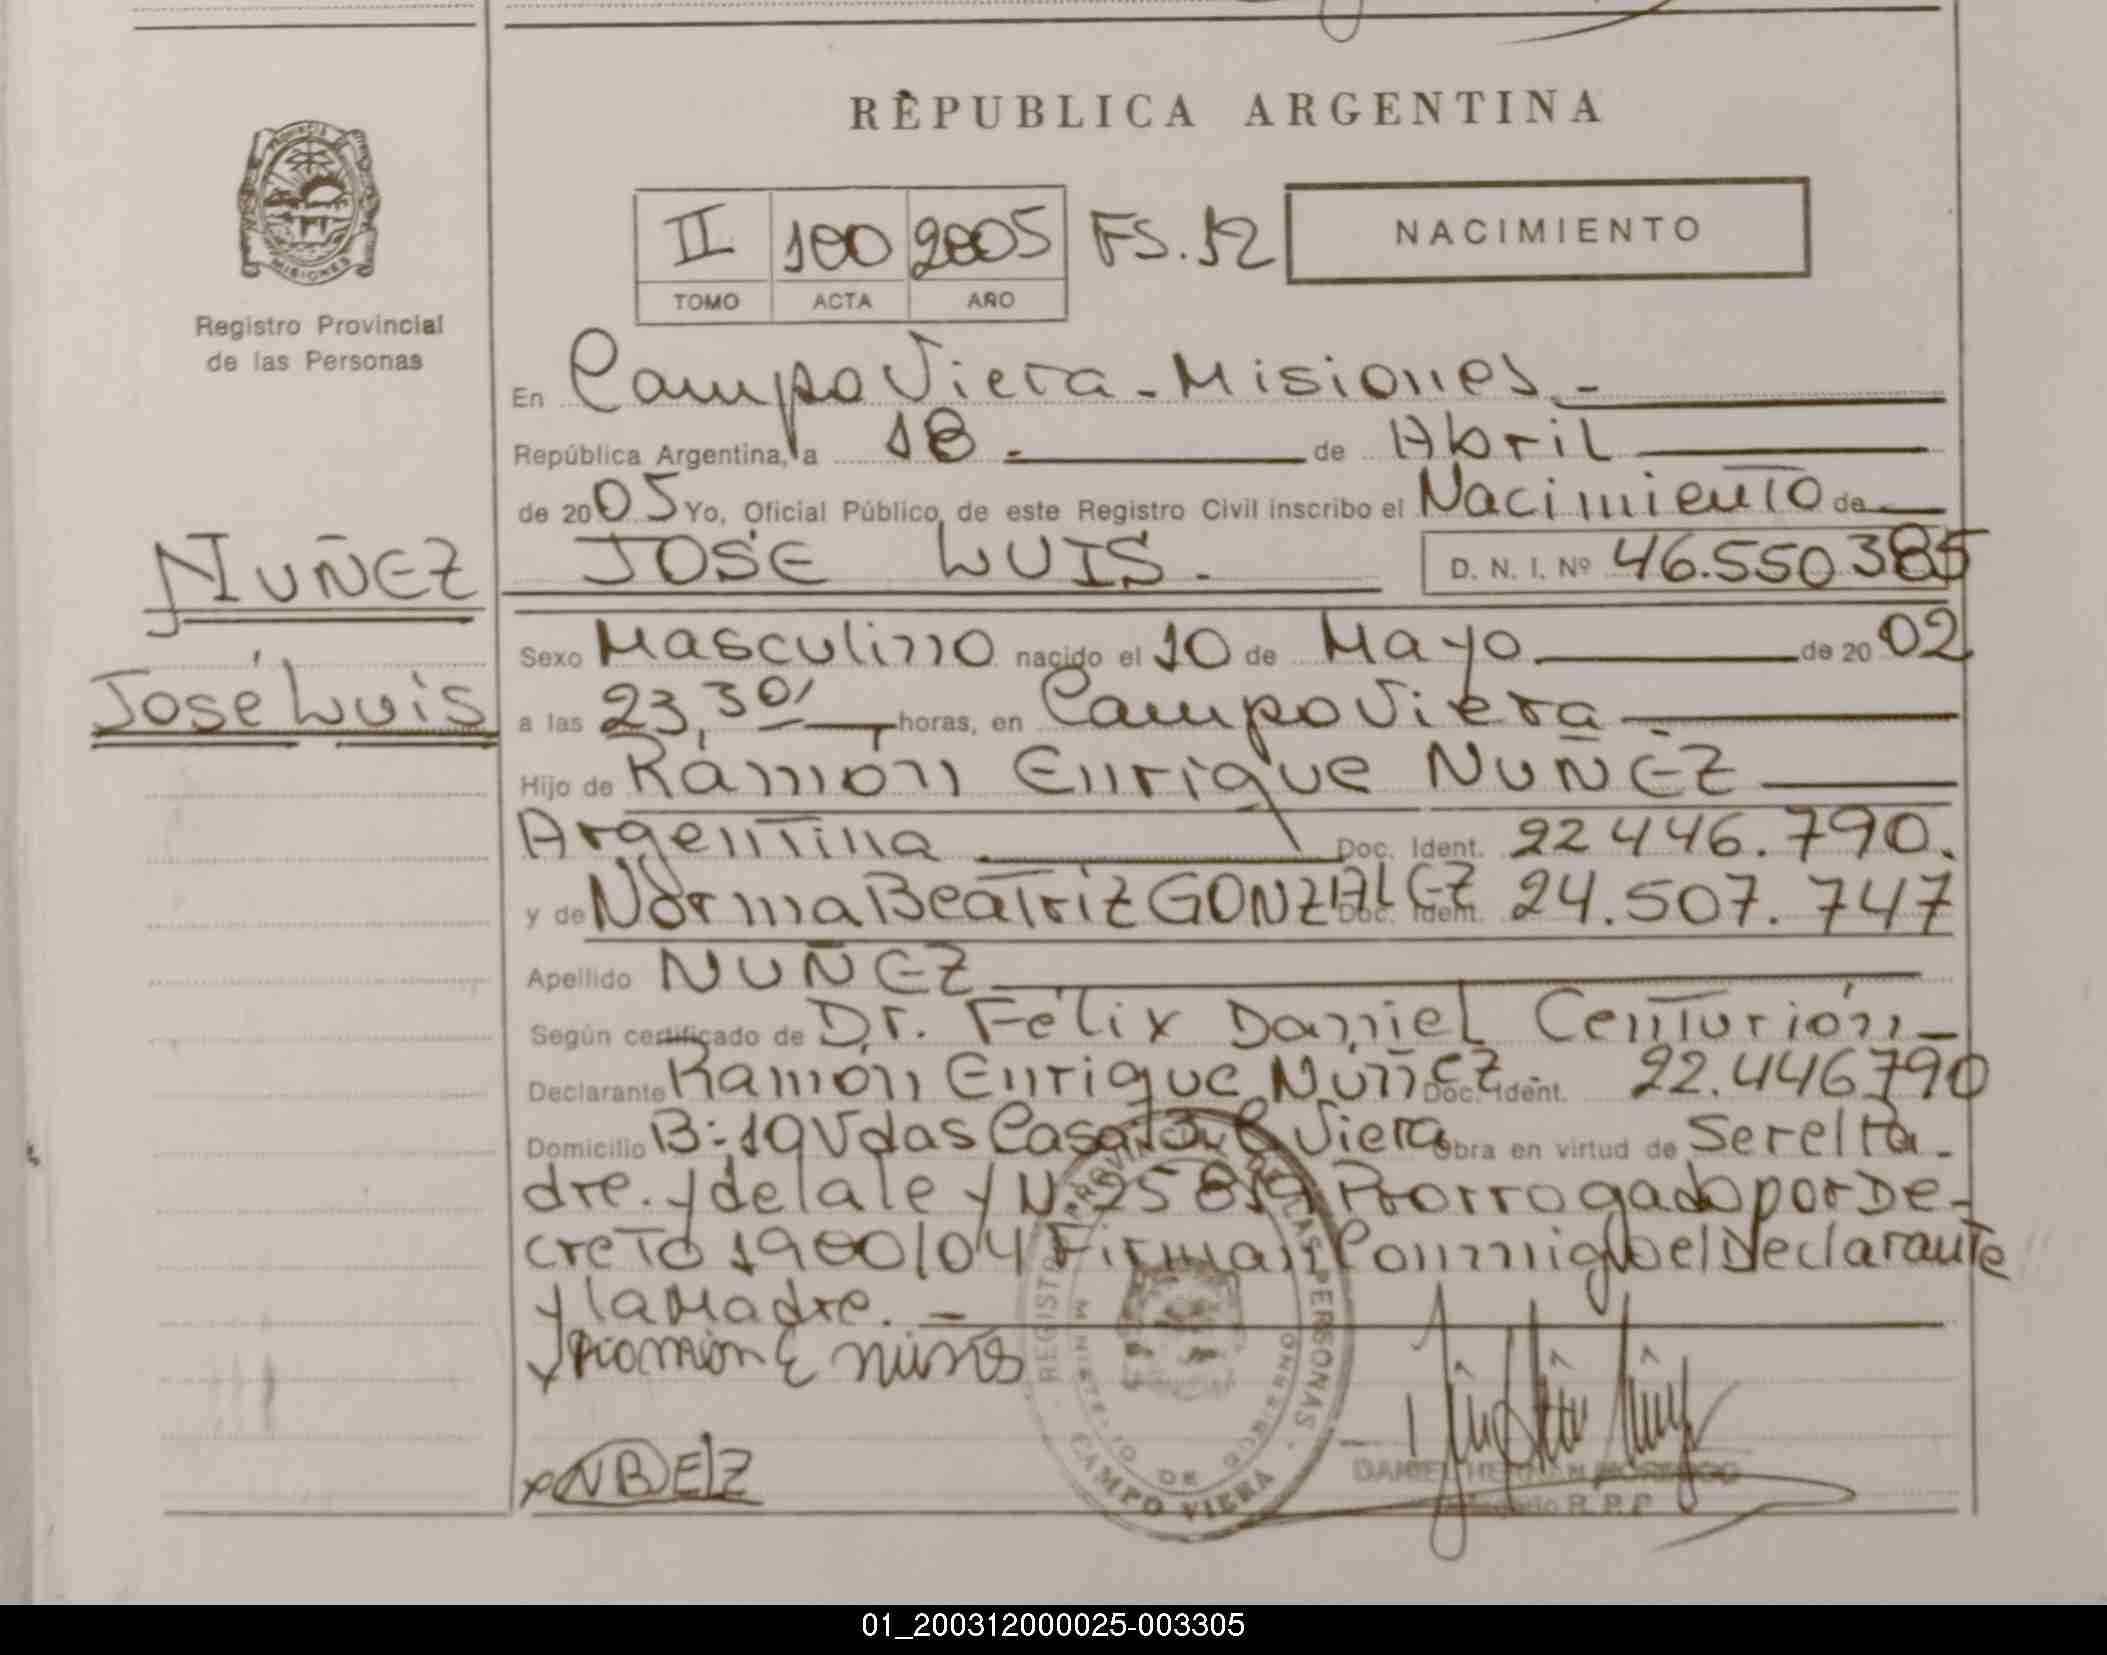 REPUBLICA ARGENTINA
II 100 2005 FS. 52
TOMO ACTA AÑO
NACIMIENTO
MISIONES
Registro Provincial
de las Personas
NUÑEZ
José Luis
En Campo Viera - Misiones. -
República Argentina, a 18. de Abril
de 2005 Yo, Oficial Público, de este Registro Civil inscribo el Nacimiento de
JOSÉ LUIS. D. N. I. Nº 46.550385
Sexo Masculino nacido el 10 de Mayo de 2002
a las 23,30' horas, en Campo Viera
Hijo de Ramón Enrique NUÑEZ
Argentina Doc. Ident. 22446.790.
y de Norma Beatriz GONZALEZ Doc. Ident. 24.507.747
Apellido NUÑEZ
Según certificado de Dr. Félix Daniel Centurión
Declarante Ramón Enrique Nuñez Doc. Ident. 22.446790
Domicilio B: 19 Vdas Casa Viera obra en virtud de Ser el Pa-
dre. y de la ley N 25 819 Prorrogado por De-
creto 1900/04 Firman Conmigo el Declarante
y la Madre. -
NBEZ
REGISTRO PROVINCIAL DE LAS PERSONAS
MINISTERIO DE GOBIERNO
CAMPO VIERA
DANIEL HERNAN
R. P. P
01_200312000025-003305